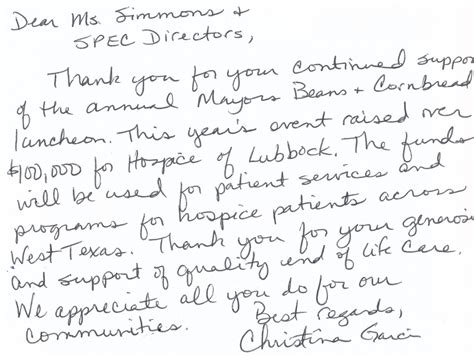 Dear Ms. Simmons +
SPEC Directors,
Thank you for your continued suppor
of the annual Mayors Beans + Cornbread
luncheon. This year's event raised over
$100,000 for Hospice of Lubbock. The funds
will be used for patient services and
programs for hospice patients across
West Texas. Thank you for your generosi
and support of quality end of life care.
We appreciate all you do for our
communities. Best regards,
Christina Garci